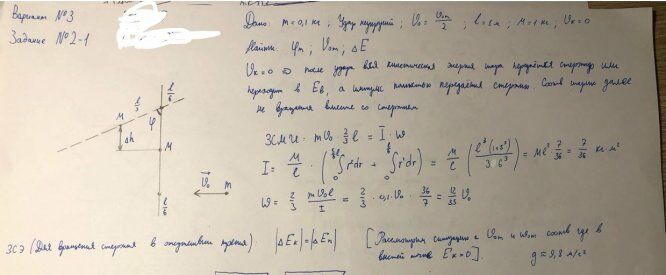 Вариант №3
Задание №2-1
Дано: m = 0,1 кг ; Удар неупругий ; V₀ = V₀m/2 ; l = 1 м ; M = 1 кг ; Vк = 0
Найти: φm ; V₀m ; ΔE
Vк = 0 ⇒ после удара вся кинетическая энергия шара передаётся стержню или
переходит в Eв, а импульс полностью передаётся стержню. Соотв шарик далее
не вращения вместе со стержнем
ЗСМИ: mV₀ · 2/3 l = I · ω
I = M/l · (∫r²dr + ∫r²dr) = M/l (l³(1+5³)/3·6³) = Ml² 7/36 = 7/36 кг·м²
ω = 2/3 mV₀l/I = 2/3 · 0,1 · V₀ · 36/7 = 12/35 V₀
l/3
l/6
M
φ
Δh
M
V₀
m
l/6
ЗСЭ (Для вращения стержня в отсутствии трения) |ΔEк| = |ΔEп|
[Рассмотрим ситуацию с V₀m и ω₀m соотв где в
высшей точке Eк = 0].
g ≈ 9,8 м/с²